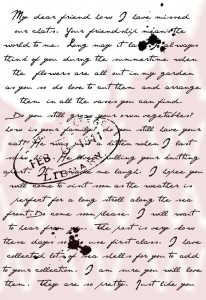 My dear friend how I have missed
our chats. Your friendship means the
world to me. Long may it last. I always
think of you during the summertime when
the flowers are all out in my garden
as you so do love to cut them and arrange
them in all the vases you can find.
Do you still grow your own vegetables?
How is your family? still have your
cat? when I last
your knitting
me laugh. I hope you
will come to visit soon as the weather is
perfect for a long stroll along the sea
front. Do come soon please. I will wait
to hear from the post is very slow
these days use first class. I have
collected lots of sea shells for you to add
to your collection. I am sure you will love
them. they are so pretty. Just like you
FEB 1911